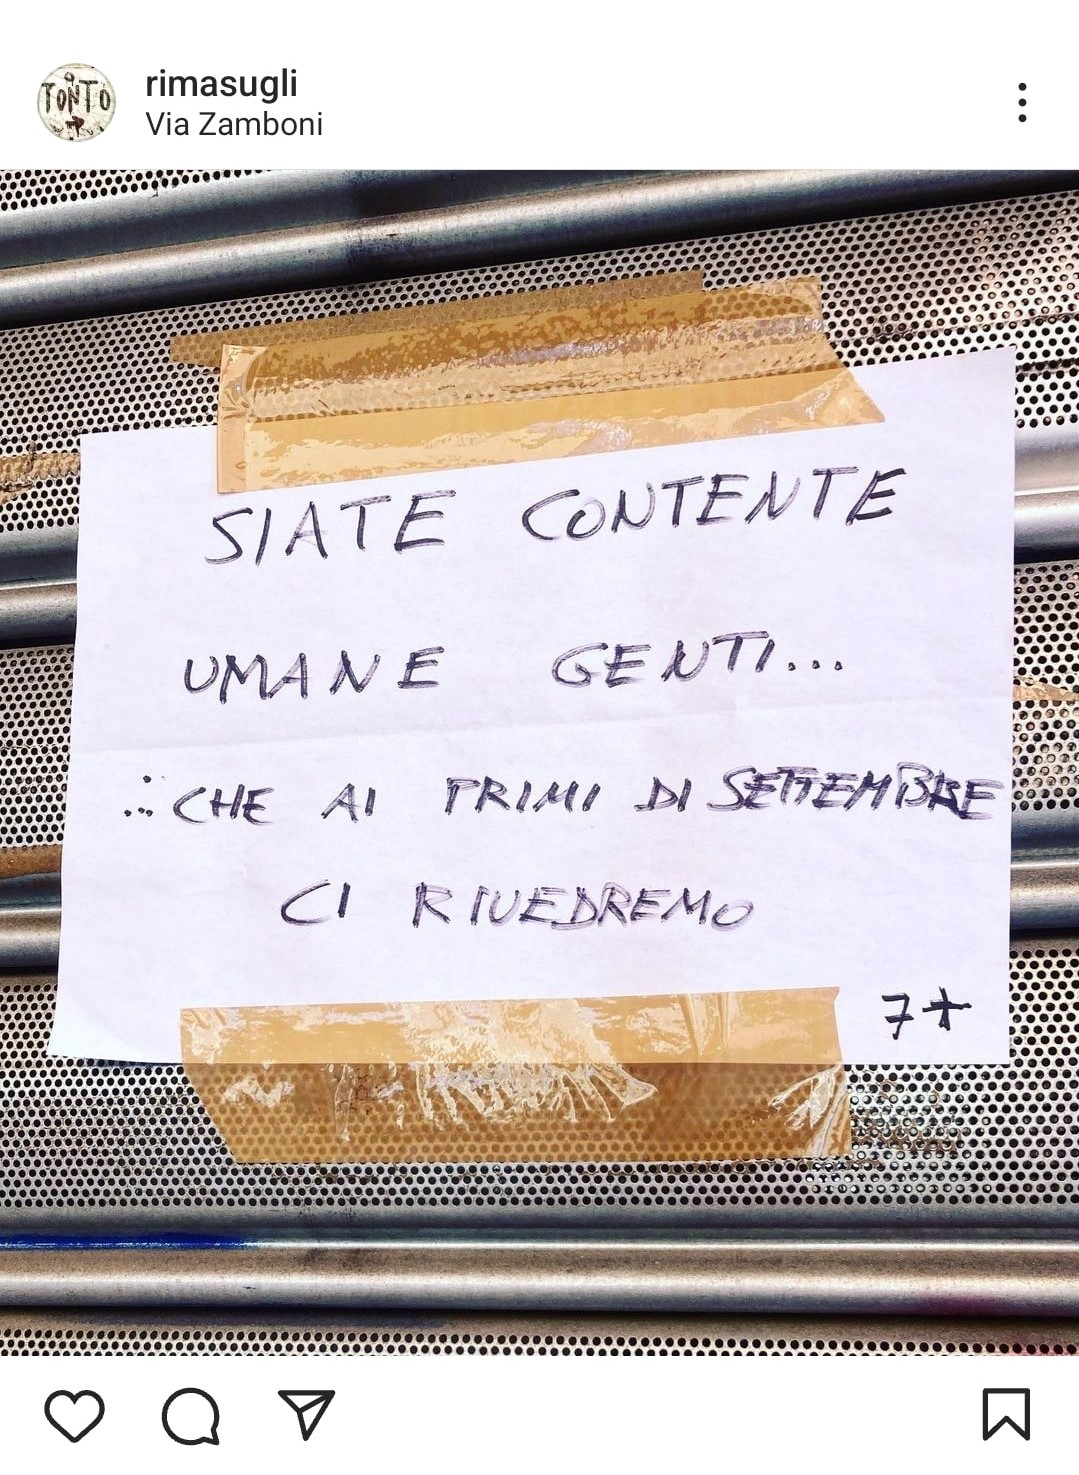 TONTO
rimasugli
Via Zamboni
SIATE CONTENTE
UMANE GENTI...
...CHE AI PRIMI DI SETTEMBRE
CI RIVEDREMO
7+